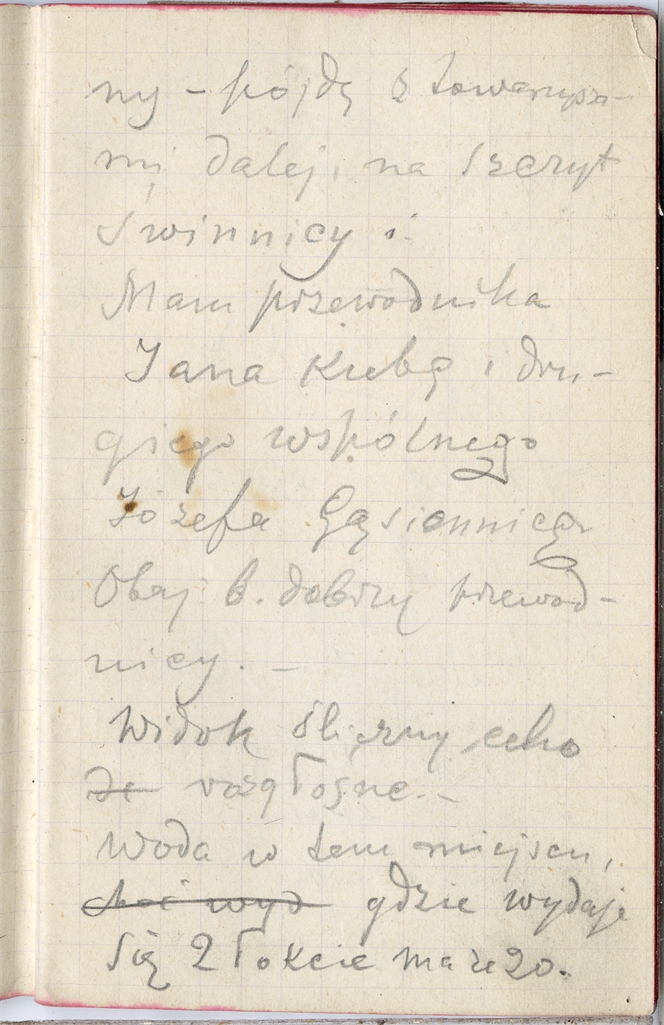 ny – pójdę z towarzysza-
mi dalej, na szczyt
świnnicy i.
Mam przewodnika
Jana Kubę i dru-
giego wspólnego
Józefa Gąsiennicę
Obaj b. dobrzy przewod-
nicy. –
Widok śliczny, echo
rozgłośne. –
Woda w tem miejscu,
gdzie wydaje
się 2 łokcie ma ze 20.